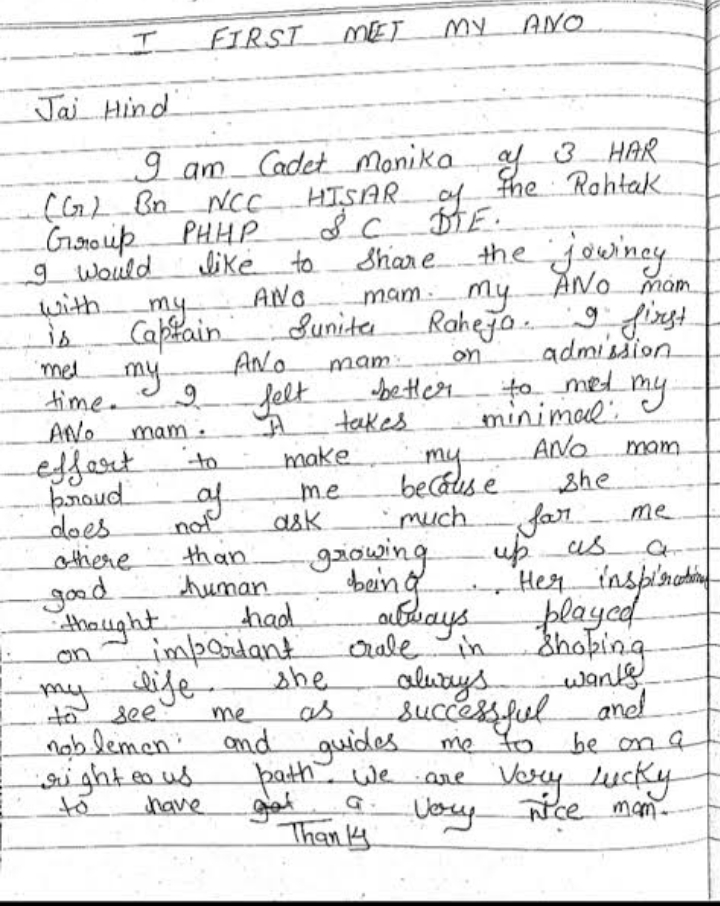 I FIRST MEET MY ANO
Jai Hind
I am Cadet Monika of 3 HAR
(G) Bn NCC HISAR of the Rohtak
Group PHHP & C DTE.
I would like to share the journey
with my ANO mam. my ANO mam
is Captain Sunita Raheja. I first
met my ANO mam on admission
time. I felt better to met my
ANO mam. It takes minimal
effort to make my ANO mam
proud of me because she
does not ask much for me
othere than growing up as a
good human being. Her inspirational
thought had always played
on important role in shaping
my life. she always wants
to see me as successful and
noblemen and guides me to be on a
righteous path. We are very lucky
to have a very nice mam.
Thanks